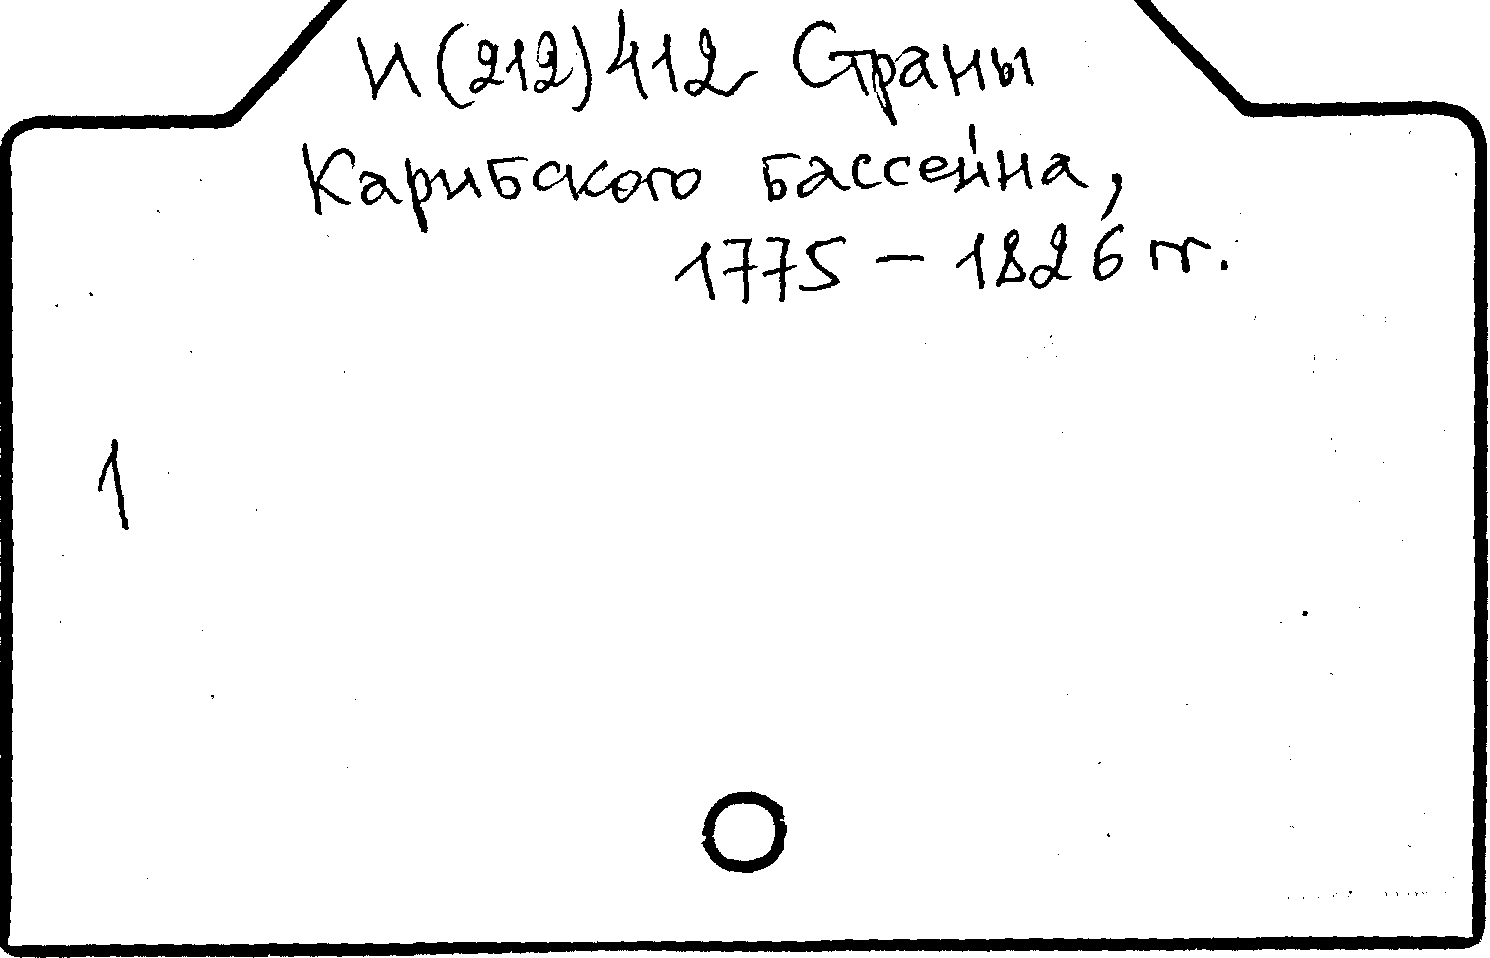 И(212)412 Страны
Карибского бассейна,
1775 – 1826 гг.
1